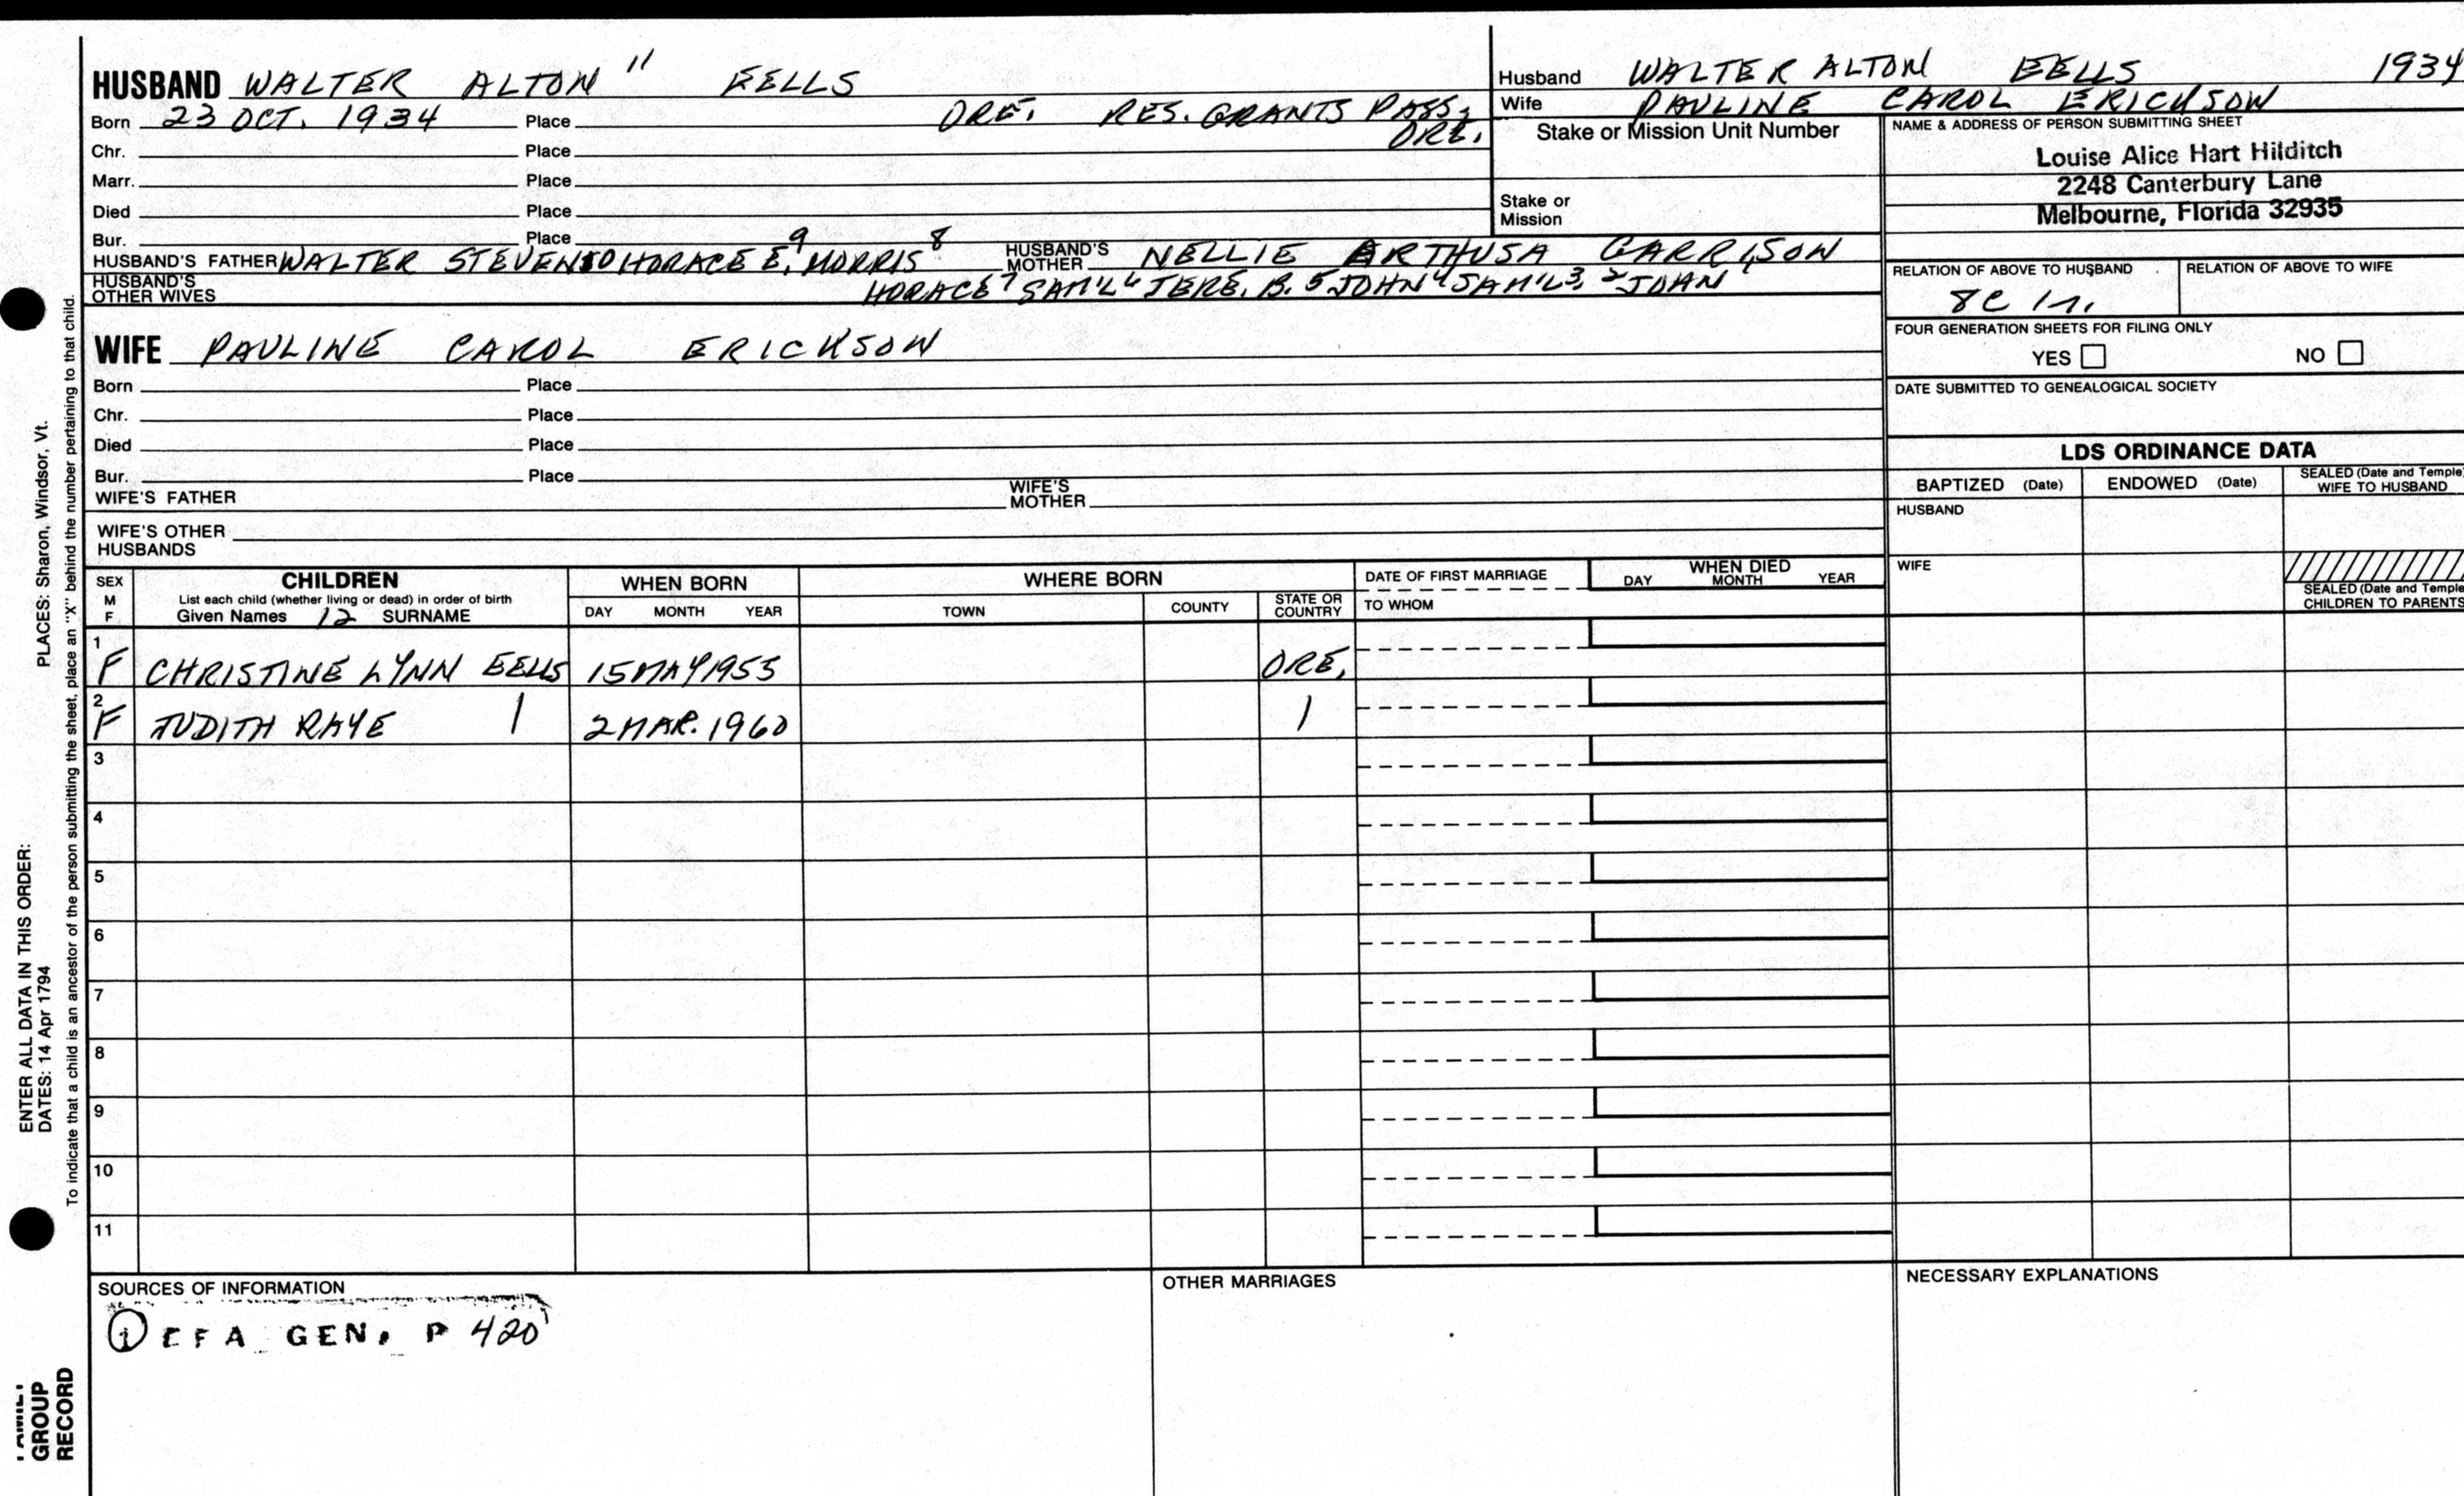 HUSBAND WALTER ALTON 11 EELLS
Born 23 OCT. 1934 Place ORE. RES. GRANTS PASS, ORE.
Chr. Place
Marr. Place
Died Place
Bur. Place
HUSBAND'S FATHER WALTER STEVEN 10 HORACE E. 9 MORRIS 8 HUSBAND'S MOTHER NELLIE ARTHUSA GARRISON
HUSBAND'S OTHER WIVES HORACE 7 SAM'L 6 JERE. B. 5 JOHN 4 SAM'L 3, 2 JOHN
Husband WALTER ALTON EELLS 1934
Wife PAULINE CAROL ERICKSON
Stake or Mission Unit Number
Stake or Mission
NAME & ADDRESS OF PERSON SUBMITTING SHEET
Louise Alice Hart Hilditch
2248 Canterbury Lane
Melbourne, Florida 32935
RELATION OF ABOVE TO HUSBAND RELATION OF ABOVE TO WIFE
8C
FOUR GENERATION SHEETS FOR FILING ONLY
YES NO
DATE SUBMITTED TO GENEALOGICAL SOCIETY
WIFE PAULINE CAROL ERICKSON
Born Place
Chr. Place
Died Place
Bur. Place
WIFE'S FATHER WIFE'S MOTHER
WIFE'S OTHER HUSBANDS
LDS ORDINANCE DATA
BAPTIZED (Date) ENDOWED (Date) SEALED (Date and Temple) WIFE TO HUSBAND
HUSBAND
WIFE
SEALED (Date and Temple) CHILDREN TO PARENTS
SEX M F
CHILDREN
List each child (whether living or dead) in order of birth
Given Names 12 SURNAME
WHEN BORN
DAY MONTH YEAR
WHERE BORN
TOWN COUNTY STATE OR COUNTRY
DATE OF FIRST MARRIAGE
TO WHOM
WHEN DIED
DAY MONTH YEAR
1 F CHRISTINE LYNN EELLS 15 MAY 1955 ORE.
2 F JUDITH RAYE 1 2 MAR. 1960 1
3
4
5
6
7
8
9
10
11
SOURCES OF INFORMATION
1 EFA GEN. P 420
OTHER MARRIAGES
NECESSARY EXPLANATIONS
ENTER ALL DATA IN THIS ORDER:
DATES: 14 Apr 1794
PLACES: Sharon, Windsor, Vt.
To indicate that a child is an ancestor of the person submitting the sheet, place an "X" behind the number pertaining to that child.
GROUP
RECORD